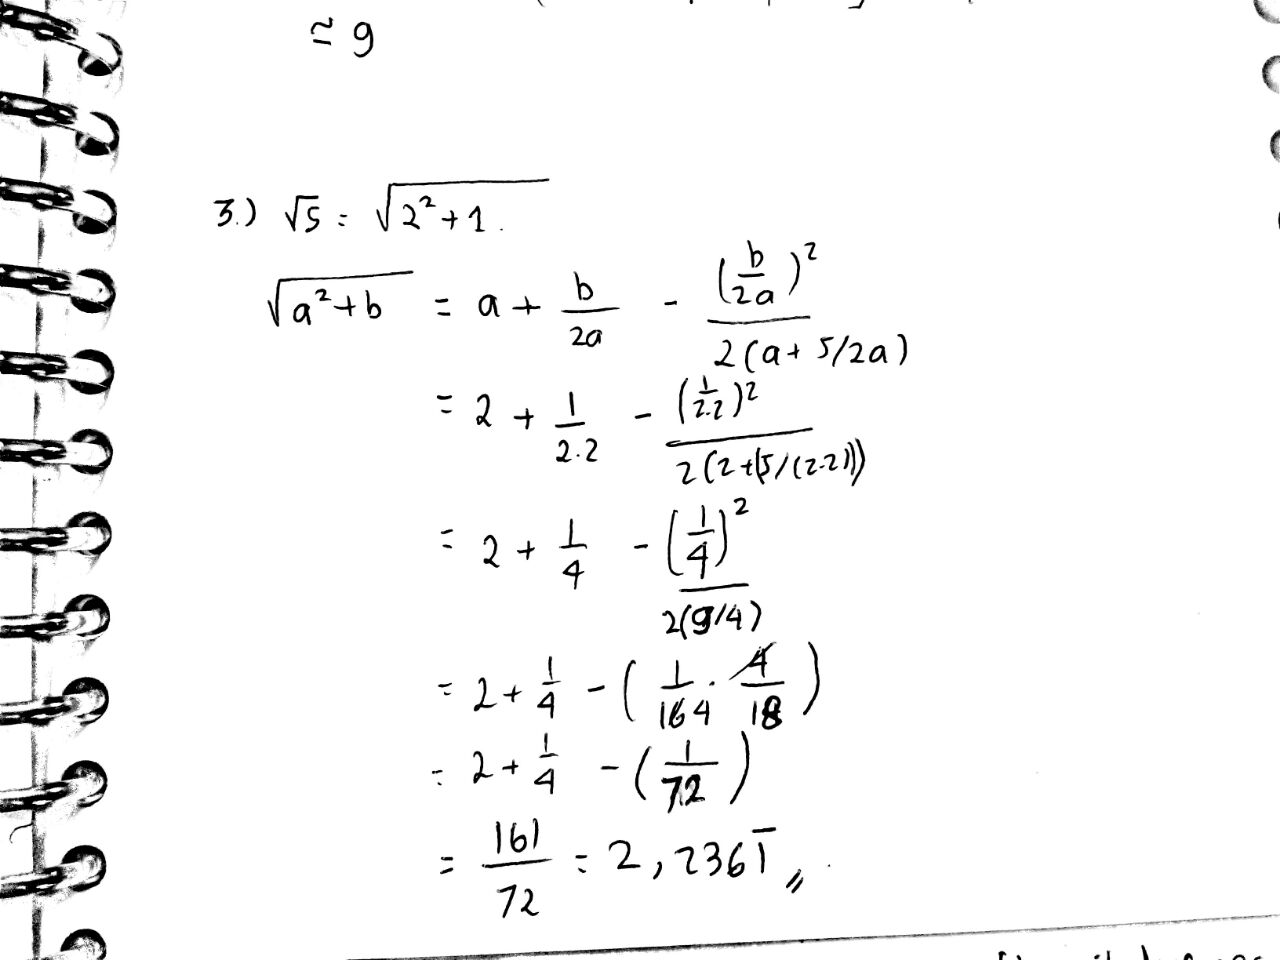 ≃ 9
3.) √5 = √(2² + 1).
√(a² + b) = a + b/2a - (b/2a)² / 2(a + 5/2a)
= 2 + 1/2.2 - (1/2.2)² / 2(2 + (5/(2.2)))
= 2 + 1/4 - (1/4)² / 2(9/4)
= 2 + 1/4 - (1/164 . 4/18)
= 2 + 1/4 - (1/72)
= 161/72 = 2,2361̅ //